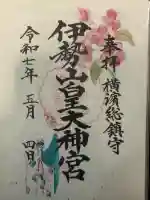 奉拝 横濱総鎮守
伊勢山皇大神宮
令和七年 五月 四日